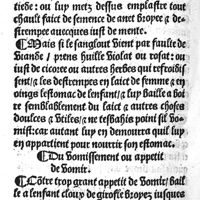 tiede: ou luy metz dessus emplastre tout
chault faict de semence de anet broyee & de-
strempee auecques iust de mente.
¶Mais si le sanglout vient par faulte de
viande / prens huille violat ou rosat: ou
iust de cicoree ou autres herbes qui refroidis-
sent / & les destrempes en laict de femme & en
oingz lestomac de lenfant / & luy baille a boi
re semblablement du laict & autres choses
doulces & vtiles / & ne tesbahis point sil vo-
mist: car autant luy en demourra quil luy
en appartient pour nourrir son estomac.
¶Du vomissement ou appetit
de vomir.
¶Cõtre trop grant appetit de vomir / bail
le a lenfant cloux de girofle broyez iusques